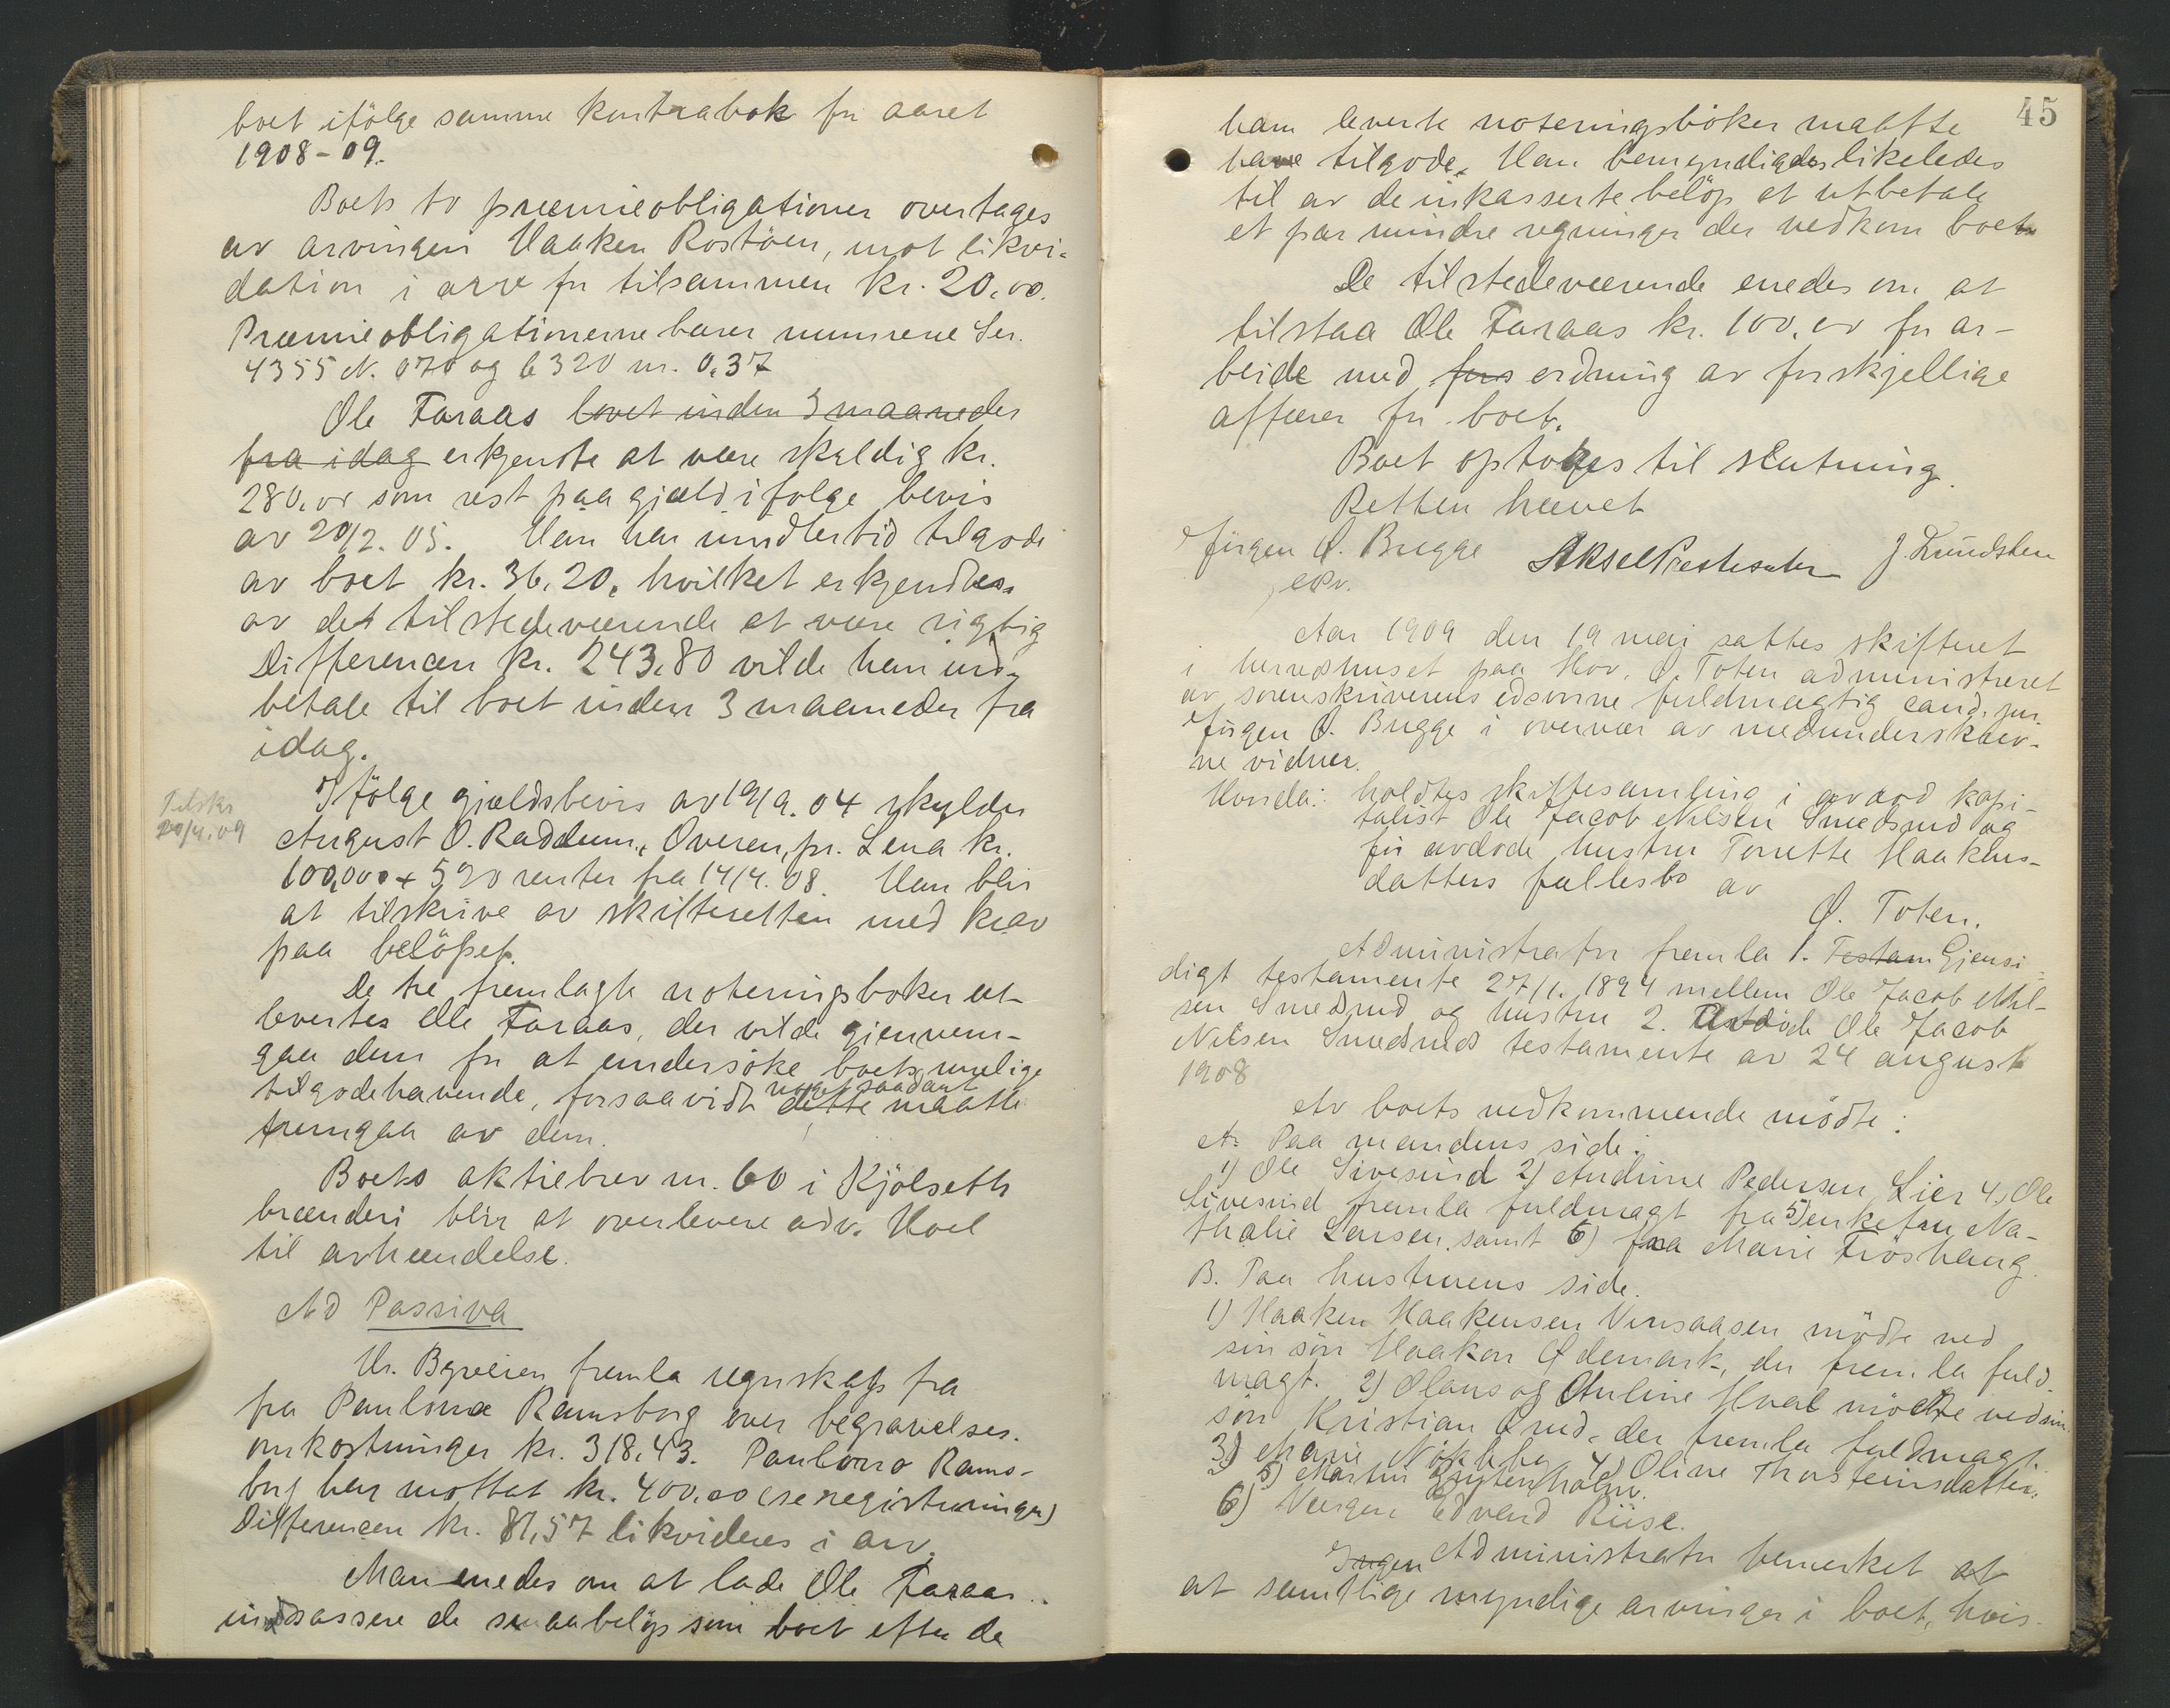 boet ifölge samme kontrabok for aaret
1908-09.
Boets to præmieobligationer overtages
av arvingen Haaken Rostöen, mot likvi-
dation i arv for tilsammen kr. 20,00.
Præmieobligationerne bærer numrene Ser.
4355 N. 070 og 6320 nr. 0,37
Ole Faraas lovet inden 3 maaneder
fra idag erkjendte at være skyldig kr.
280,00 som rest paa gjæld ifølge bevis
av 20/2. 05. Han har imidlertid tilgode
av boet kr. 36,20, hvilket erkjendtes
av det tilstedeværende at være rigtig
Differencen kr. 243,80 vilde han ind-
betale til boet inden 3 maaneder fra
idag.
Tilskr
20/4.09
Ifölge gjældsbevis av 19/9. 04 skylder
August O. Raddum, Overen, pr. Lena kr.
600,00 + 5 % renter fra 14/4. 08. Han blir
at tilskrive av skifteretten med krav
paa belöpet.
De tre fremlagte noteringsboker ut-
levertes Ole Faraas, der vilde gjennem-
gaa dem for at undersöke boets mulige
noget saadant
tilgodehavende, forsaavidt dette maatte
fremgaa av dem.
Boets aktiebrev nr. 60 i Kjölseth
brænderi blir at overlevere adv. Hoel
til avhændelse.
Ad Passiva
Hr. Byveien fremla regnskap fra
fra Paulona Ramsborg over begravelses-
omkostninger kr. 318,43. Paulona Rams-
borg har mottat kr. 400,00 (se registreringen)
Differencen kr. 81,57 likvideres i arv.
Man enedes om at lade Ole Faraas
indkassere de smaabeløp som boet efter de
45
ham leverte noteringsböker maatte
have tilgode. Han bemyndigedes likeledes
til av de inkasserte belöp at utbetale
et par mindre regninger der vedkom boet
De tilstedeværende enedes om at
tilstaa Ole Faraas kr. 100,00 for ar-
beide med fors ordning av forskjellige
affærer for boet.
Boet optokes til slutning.
Retten hævet
Jörgen Ø. Bugge Aksel Prestesæter J. Lundsten
eksv.
Aar 1909 den 19 mai sattes skifteret
i herredshuset paa Hov, Ø. Toten administreret
av sorenskriverens edsvorne fuldmægtig cand. jur.
Jörgen Ø. Bugge i overvær av medunderskrev-
ne vidner.
Hvorda: holdtes skiftesamling i avdød kapi-
talist Ole Jacob Nilsen Smedsrud og
for avdøde hustru Tonette Haakens-
datters fællesbo av
Ø. Toten.
Administrator fremla 1. Testam Gjensi-
digt testamente 27/1. 1894 mellem Ole Jacob Nil-
sen Smedsrud og hustru 2. Avdöde Ole Jacob
Nilsen Smedsruds testamente av 24 august
1908
Av boets vedkommende mödte:
A. Paa mandens side:
1) Ole Sivesind 2) Andrine Pedersen Lier 4) Ole
Sivesind fremla fuldmagt fra 5) enkefru Na-
thalie Larsen, samt 6) fra Marie Fröshaug.
B. Paa hustruens side.
1) Haaken Haakensen Vinsaasen mödte ved
sin sön Haakon Ødemark, der fremla fuld-
magt. 2) Olaus og Anline Hval mödte ved sin
sön Kristian Qrud, der fremla fuldmagt.
3) Marie Nökleby 4) Oline Thorsteinsdatter.
5) Martin Grytenholm.
6) Vergen Edvard Riise.
Ingen Administrator bemerket at
at samtlige myndige arvinger i boet, hvis